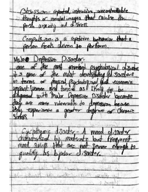 Obsession: repeated, intrusive, uncontrollable
thoughts or mental images that causes to
feel anxiety and distress
Compulsion is a repetitive behaviour that a
person feels driven to perform
Major Depressive Disorder
one of the most common psychological disorder
is one of the major
terms of physical, psychological and economic
women are
diagnosed with Major Depressive Disorder because
they are more vulnerable to depression because
they experience a greater degree or chronic
stress
Cyclothymic Disorder: A mood disorder
characterized by moderate but frequent
mood swings that are not severe enough to
qualify as bipolar disorder.